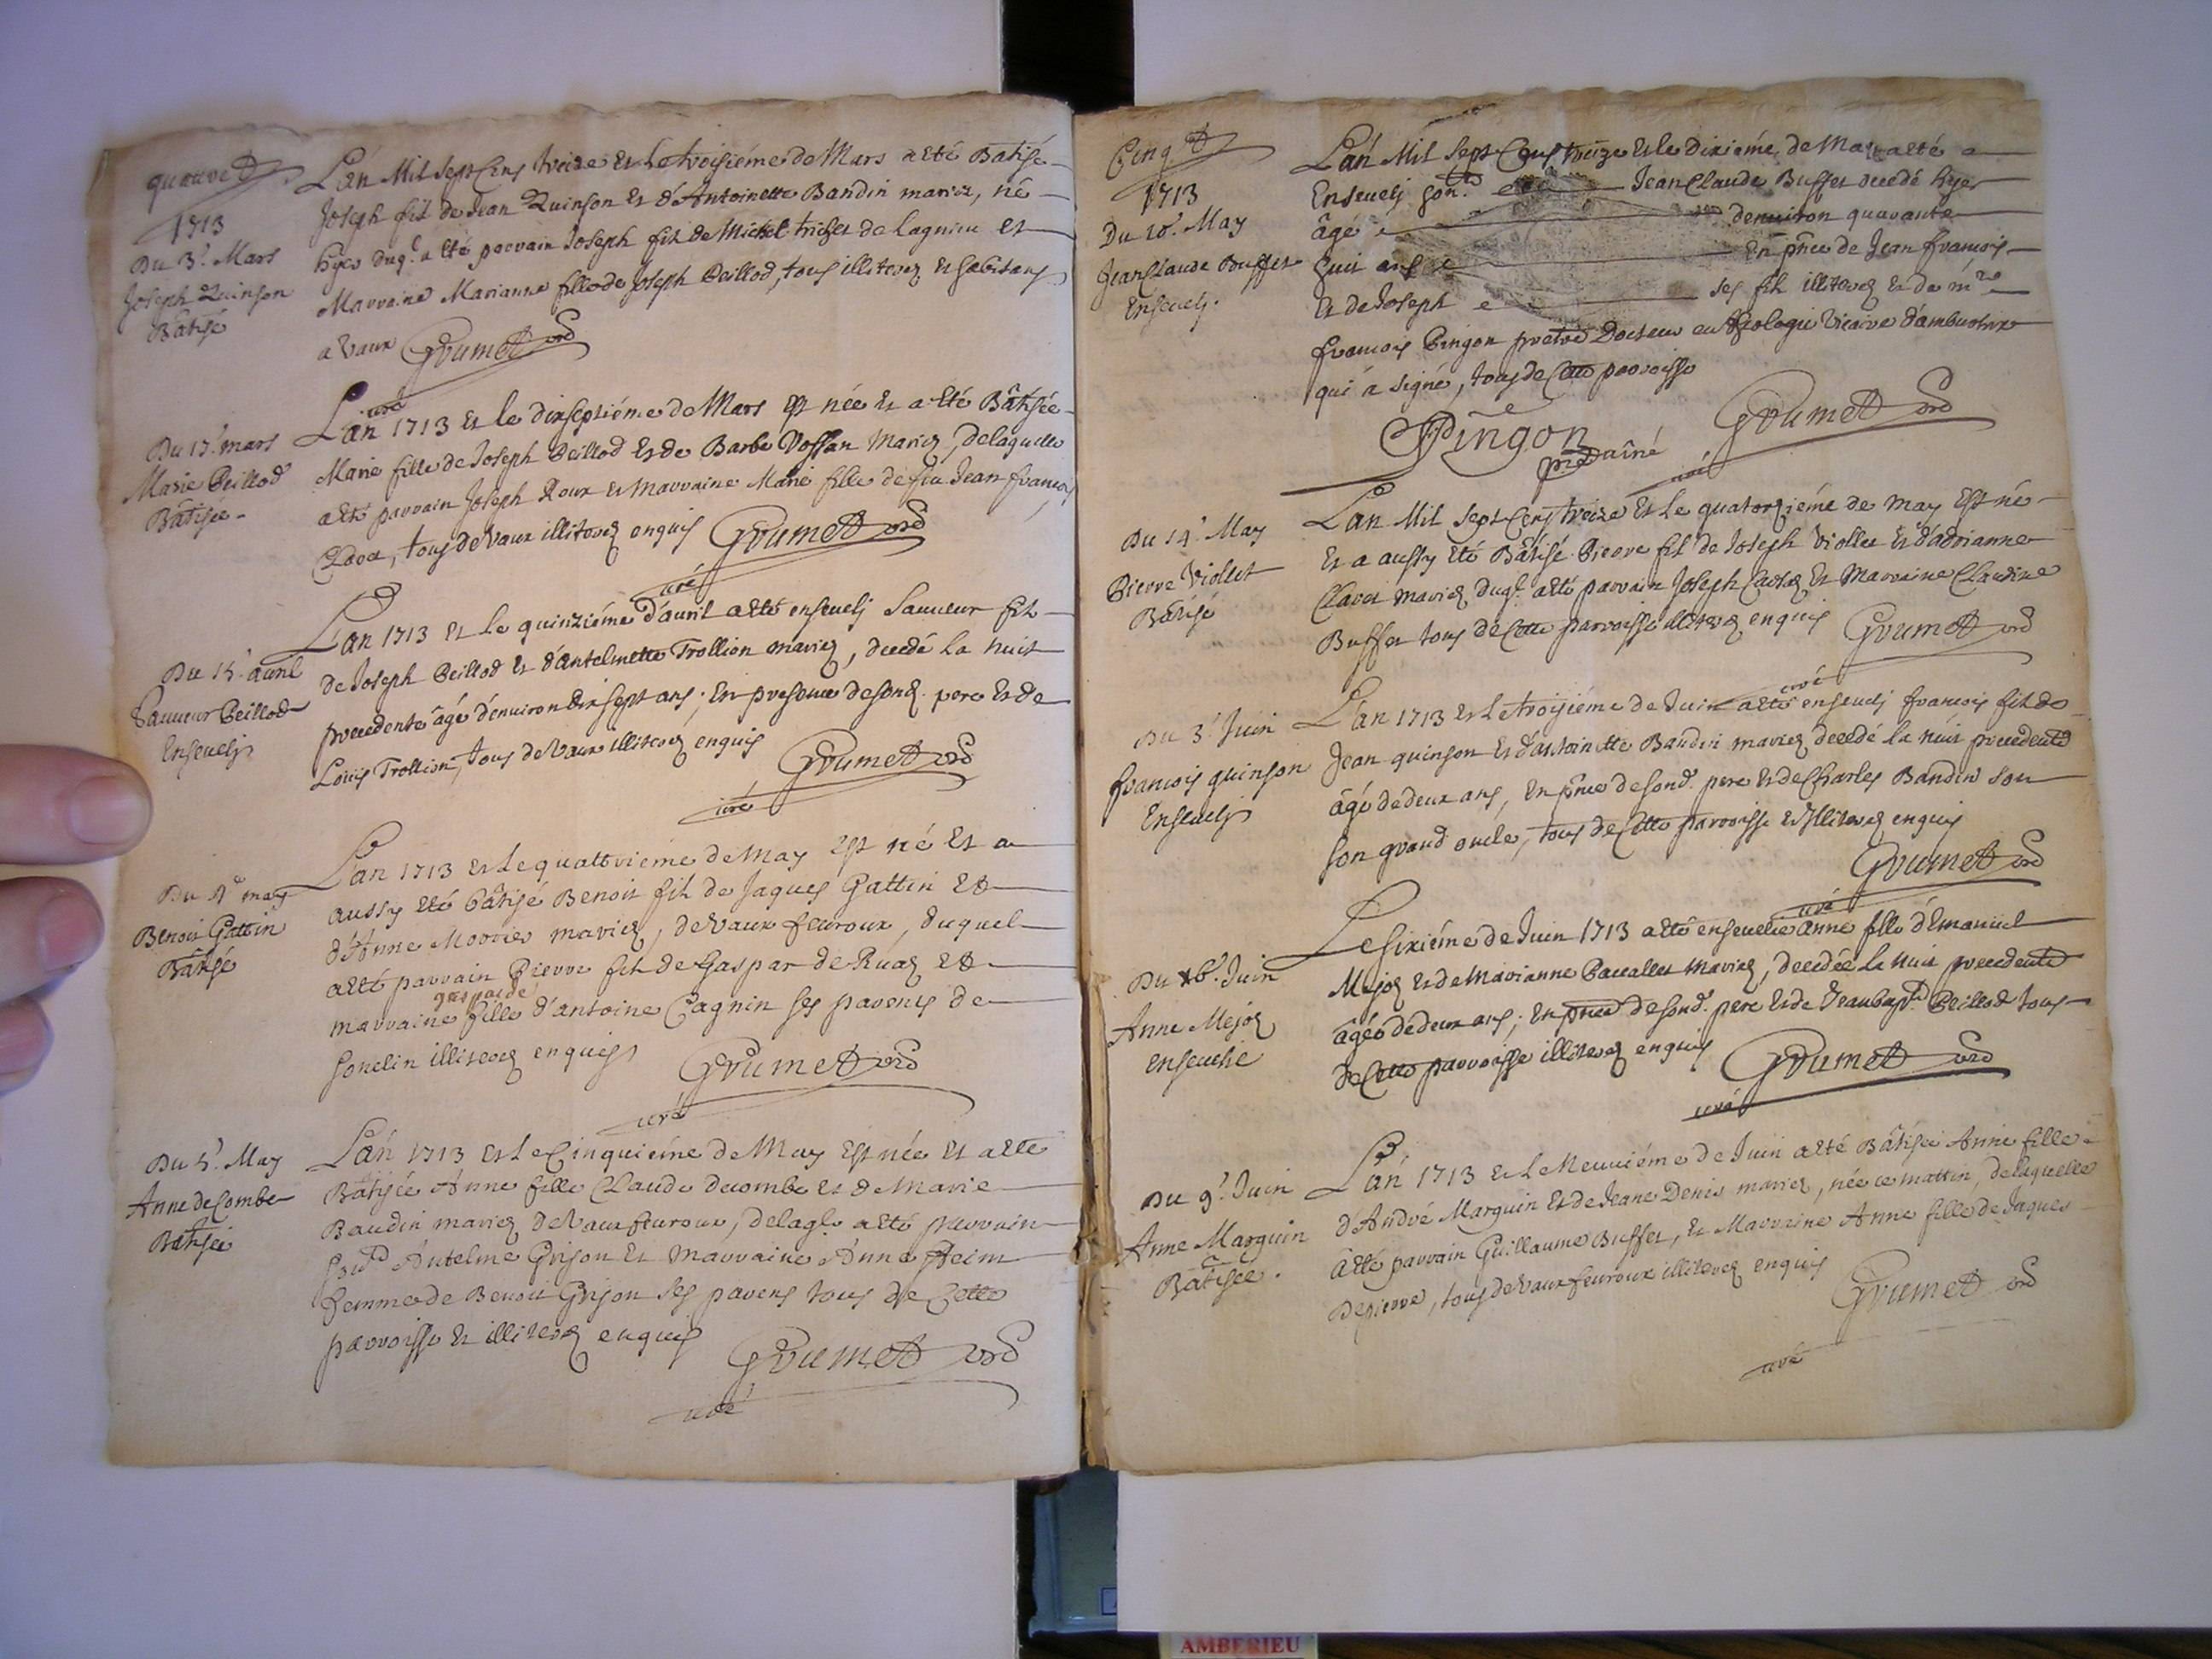 quatre
1713
Du 3e. Mars
Joseph Quinson
Bâtisé
L'an Mil sept Cens treize Et Le troisiéme de Mars a Eté Batisé
Joseph fils de Jean Quinson Et d'Antoinette Bandin mariez, né
hyer duql. a Eté parrain Joseph fils de Michel trichet de Lagnieu et
Marraine Marianne fille de Joseph Peillod, tous illiterez Et habitans
a Vaux Grumet
curé
Du 17e. mars
Marie Peillod
Bâtisée
L'an 1713 Et le dixseptiéme de Mars Est née Et a Eté Bâtisée
Marie fille de Joseph Peillod Et de Barbe Vossan Mariez, delaquelle
a Eté parrain Joseph Roux Et Marraine Marie fille de feu Jean francois
tous de Vaux illiterez enquis Grumet
curé
Du 15e. avril
Sauveur Peillod
Ensevely
L'an 1713 Et Le quinziéme d'avril a Eté ensevely Sauveur fils
de Joseph Peillod Et d'Antelmette Trollion mariez, decedé La nuit
precedente âgé d'environ dix sept ans; En presence de sond. pere Et de
Louis Trollion, tous de Vaux illiterez enquis Grumet
curé
Du 4e may
Benoit Gattin
Bâtisé
L'an 1713 Et Le quattriéme de May Est né Et a
aussy Eté bâtisé Benoit fils de Jaques Gattin Et
d'Anne mariez, de Vaux fevroux, duquel
a Eté parrain Pierre fils de Gaspar de Ruaz Et
gasparde
marraine fille d'antoine Cagnin ses parens de
illiterez enquis Grumet
curé
Du 5e. May
Anne de Combe
Bâtisée
L'an 1713 Et Le Cinquiéme de May Est née Et a Eté
Bâtisée Anne fille Claude decombe Et de Marie
Baudin mariez de Vaux fevroux, delaqle a Eté parrain
Antelme Grison Et marraine Anne
femme de Benoit Grison ses parens tous de Cette
parroisse Et illiterez enquis Grumet
curé
Cinq
1713
Du 10e. May
Jean Claude Buffet
Ensevely.
L'an Mil Sept Cens treize Et le dixiéme de May a eté
Ensevely Jean Claude Buffet decedé hyer
âgé denviron quarante
huit ans En pnce de Jean francois
Et de Joseph ses fils illiterez Et de mre
francois Pingon pretre Docteur en theologie Vicaire d'ambutrix
qui a signé, tous de Cette parroisse
Pingon
Grumet
curé
Du 14e. May
Pierre Viollet
Bâtisé
L'an Mil Sept Cens treize Et Le quatorziéme de may Est né
Et a aussy Eté Bâtisé Pierre fils de Joseph Viollet Et d'adrianne
Claret mariez duql. a Eté parrain Joseph Et Marraine Claudine
Buffet tous de Cette parroisse illiterez enquis Grumet
curé
Du 3e. Juin
francois quinson
Ensevely
L'an 1713 Et Le troisiéme de Juin a Eté ensevely francois fils de
Jean quinson Et d'antoinette Bandin mariez decedé la nuit precedente
âgé de deux ans, En pnce de sond. pere Et de Charles Bandin son
son grand oncle, tous de Cette parroisse Et Illiterez enquis
Grumet
curé
Du 6e. Juin
Anne Mejoz
ensevelie
Le sixiéme de Juin 1713 a Eté ensevelie Anne fille d'Emanuel
Mejoz Et de Marianne mariez, decedée la nuit precedente
âgée de deux ans; En pnce de sond. pere Et de Jean bapt. Peillod tous
de Cette parroisse illiterez enquis Grumet
curé
Du 9e. Juin
Anne Marguin
Bâtisée.
L'an 1713 Et Le Neuviéme de Juin a Eté Bâtisée Anne fille
d'André Marguin Et de Jeane Denis mariez, née ce mattin, delaquelle
a Eté parrain Guillaume Buffet, Et Marraine Anne fille de Jaques
Depierre, tous de Vaux fevroux illiterez enquis Grumet
curé
AMBERIEU